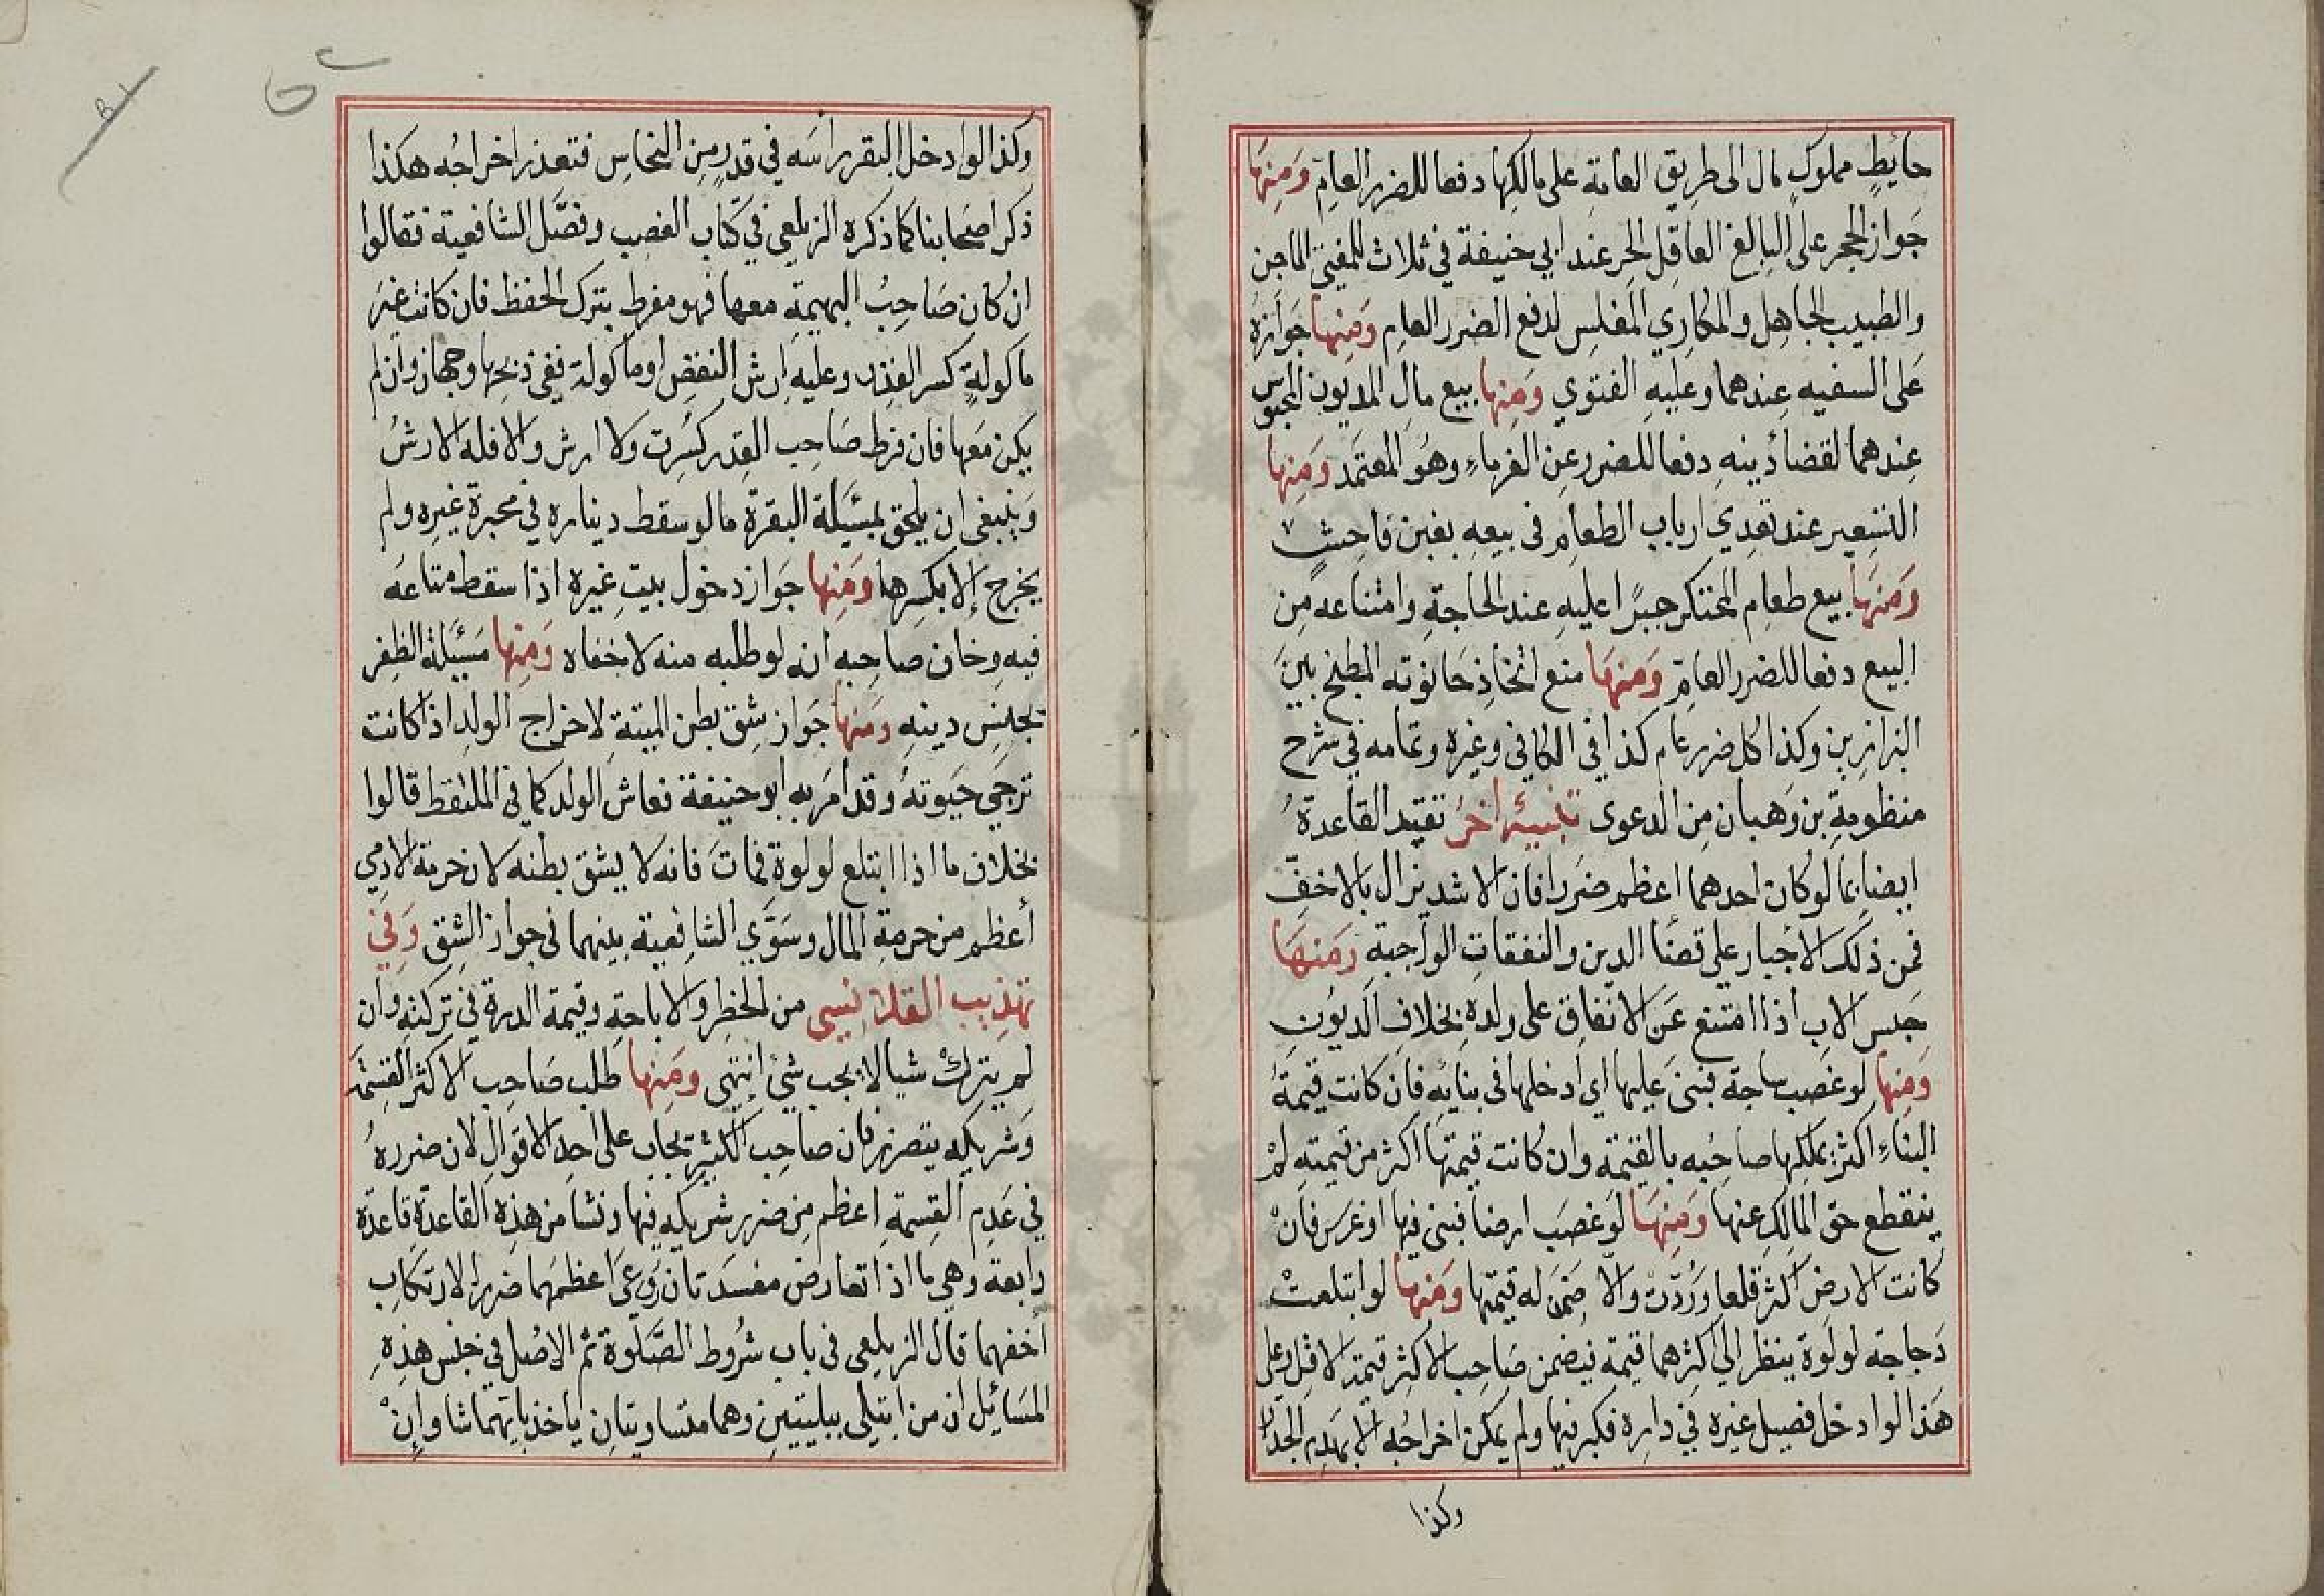 حائِطٍ مملوكٍ مال الى طريق العامة على مالكها دفعا للضرر العام وَمِنهَا
جَواز الحجر على البالغ العاقل الحر عند ابي حنيفة في ثلاث المفتي الماجن
والطبيب الجاهل والمكاري المفلس لدفع الضرر العام وَمِنها جَوازهُ
عَلى السفيه عندهما وعليه الفتوي وَمِنها بيع مال المديون المحبوس
عندهما لقضا دينهِ دفعا للضرر عن الغرماءِ وهوَ المعتمَد وَمِنها
التسعير عند تعدي ارباب الطعام في بيعهِ بغبن فاحش
وَمنهَا بيع طعام المحتكر جبرًا عليهِ عند الحاجةِ وامتناعه مِن
البيع دفعا للضرر العام وَمنهَا منع اتخاذ حَانوته المطبخ بينَ
البزازين وكذا كل ضرر عام كذا في الكافي وغيره وتمامه في شرح
منظومةِ بن وَهبان مِن الدعوى تنبيه اخر تقيد القاعدةُ
ايضا بما لو كان احدهما اعظم ضررا فان الاشد يزال بالاخف
فمن ذلك الاجبار على قضَا الدين والنفقات الواجبةِ وَمنهَا
حَبس الاب اذا امتنع عَن الانفاق على ولدهِ بخلاف الديُون
وَمِنها لو غصب ساجة فبنى عليها اي ادخلها في بنائِهِ فان كانت قيمةُ
البناءِ اكثر يملكها صاحبه بالقيمة وان كانت قيمتها اكثر من قيمتهِ لمْ
ينقطع حق المالك عنها وَمِنهَا لو غصَب ارضا فبنى فيها او غرس فانْ
كانت الارض اكثر قلعا وَرُدّت والّا ضَمنَ له قيمتها وَمنها لو ابتلعتْ
دَجاجة لولوة ينظر الي اكثرهما قيمة فيضمن صَاحب الاكثر قيمة الاقل وعلى
هَذا لو ادخل فصيل غيره في داره فكبر فيها ولم يمكن اخراجُه الّا بهدم الجدار
وكذا
وكذا لو ادخل البقر رأسَه في قدرٍ مِن النحاس فتعذر اخراجُه هكذا
ذكر اصحَابنا كما ذكره الزيلعي في كتاب الغصب وفصَّل الشافعية فقالوا
ان كان صَاحبُ البهيمَةِ معها فهو مفرط بترك الحفظ فان كانت غير
ماكولةٍ كسر القدر وعليه ارش النقص او ماكولة ففي ذبحها وجهان وان لم
يكن مَعها فان فرط صَاحب القدر كُسِرت ولا ارش والا فله الارشُ
وَينبغي ان يلحق بمسَيلَة البقرة ما لو سقط ديناره في محبرة غيرِه ولم
يخرج إلا بكسرها وَمِنها جَواز دخول بيتِ غيره اذا سقط متاعَه
فيه وخاف صاحبه انه لو طلبه منه لاخفاه وَمِنها مَسَيَلة الظفر
بجنس دينهِ وَمنها جَواز شِق بطن الميتةِ لاخراج الولد اذا كانت
ترجَي حَيوتهُ وقد امَر به ابو حنيفة فعاش الولد كما في الملتقط قالوا
بخلاف ما اذا ابتلع لولوة فماتَ فانه لا يشق بطنه لان حرمة الادمي
أعظم من حرمةِ المال وسَوّي الشافعية بينهما في جواز الشق وَفي
تهذيب القلانسي من الحظر والاباحةِ وقيمة الدرة في تركته وان
لم يترك شيا لا يجب شيْ انتهى ومَنِها طلب صَاحب الاكثر القسمَة
وَشريكه يتضرر فان صاحب الكثير يجاب على احد الاقوال لان ضررهُ
في عَدم القسمةِ اعظم مِن ضرر شريكه فيها ونشا من هذِه القاعدة قاعدة
رابعة وهي ما اذا تعارض مفسدَتان رُوعىَ اعظمهمَا ضررا لارتكاب
أخفهما قال الزيلعي في باب شُروط الصَّلَوة ثم الاصل في جنس هذِهِ
المسَائل ان من ابتلي ببليتين وهما متساويتان ياخذ بايتهما شا وانْ